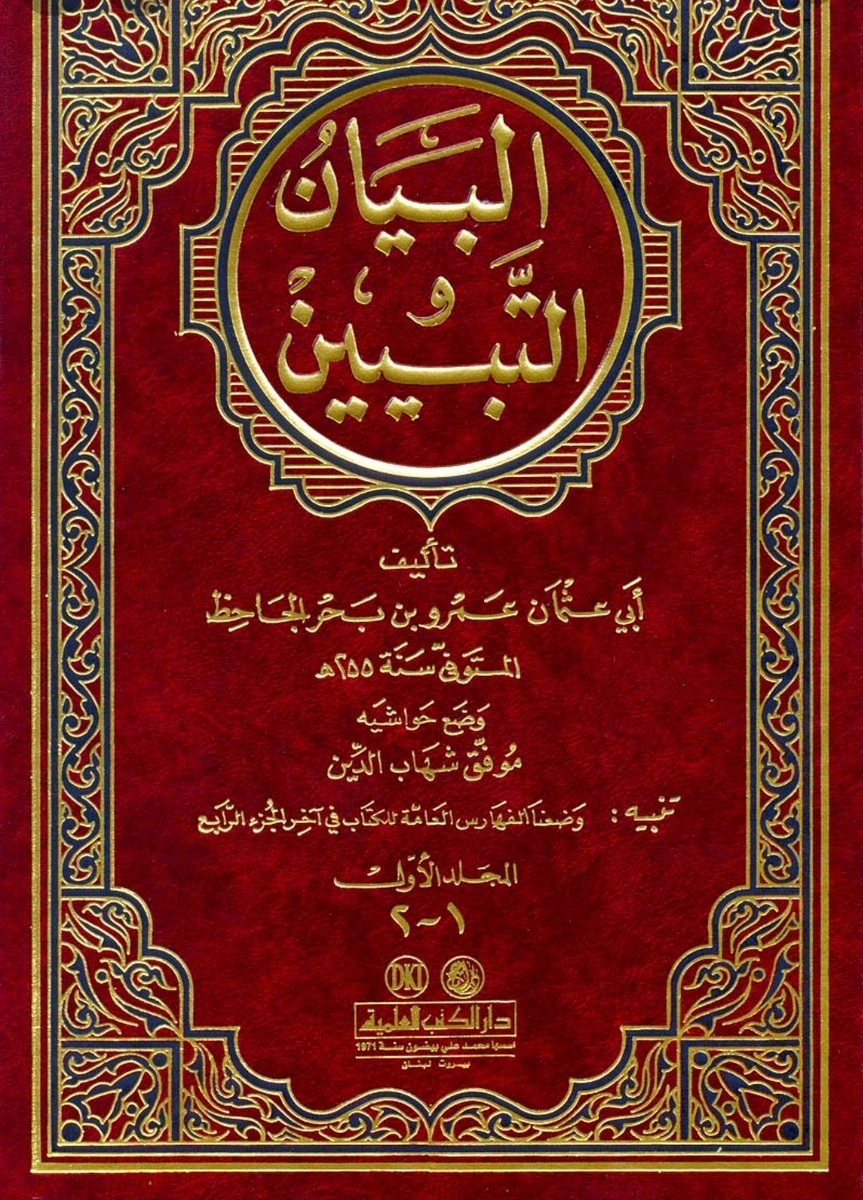 البَيَانُ
و
التَّبْيِين
تأليف
أبي عثمان عمرو بن بحر الجاحظ
المتوفّى سنة ٢٥٥ هـ
وضع حواشيه
موفّق شهاب الدّين
تنبيه : وضعنا الفهارس العامّة للكتاب في آخر الجزء الرّابع
المجلد الأوّل
١-٢
DKI
دار الكتب العلمية
أسسها محمد علي بيضون سنة 1971
بيروت لبنان